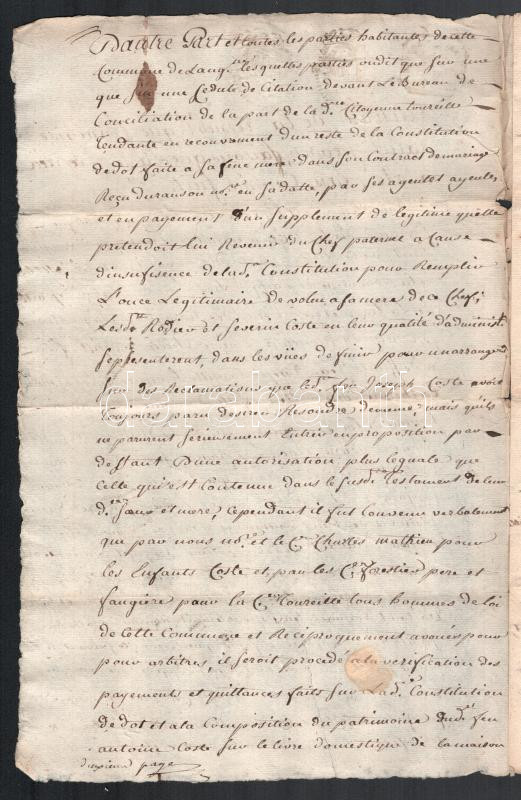 D'autre Part et toutes les parties habitantes de cette
Commune de Lang. lesquelles parties ont dit que sur une
que sur une Cedule de Citation devant Le Bureau de
Conciliation de la part de la d.ne Citoyenne toureille
tendante en recouvrement d'un reste de la Constitution
de dot faite a sa fine mere dans son Contract de mariage
Reçu Duranson no.re en sa datte, par ses agents
et en payement d'un Supplement de legitime qu'elle
pretendoit lui Revenir du Chef paternel a Cause
d'insufisence de lad. Constitution pour Remplir
L'once Legitimaire de volue a sa mere de ce Chef;
Lesd. Rodier et Severin Coste en leur qualité d'administ.
se presenterent, dans les vües de finir pour un arrangem.
sur des Reclamations que led. feu Joseph Coste avoit
toujours paru desirer Resoudre de meme; mais qu'ils
ne parurent serieusement Entrer en proposition par
deffaut D'une autorisation plus legale que
Celle qui est Contenue dans le susd. Testament de leur
d. sœur et mere, Cependant il fut convenu verbalement
que par nous no.re et le C.en Charles mathieu pour
les Enfants Coste et, par les C.en forestier pere et
faugiere pour la C.ne Toureille tous hommes de loi
de cette Commune et Reciproquement avoués pour
pour arbitres, il seroit procedé a la verification des
payements et quittances faits sur Lad. Constitution
de dot et a la Composition du patrimoine dud. feu
antoine Coste sur le livre domestique de la maison
deuxieme page
darabanth